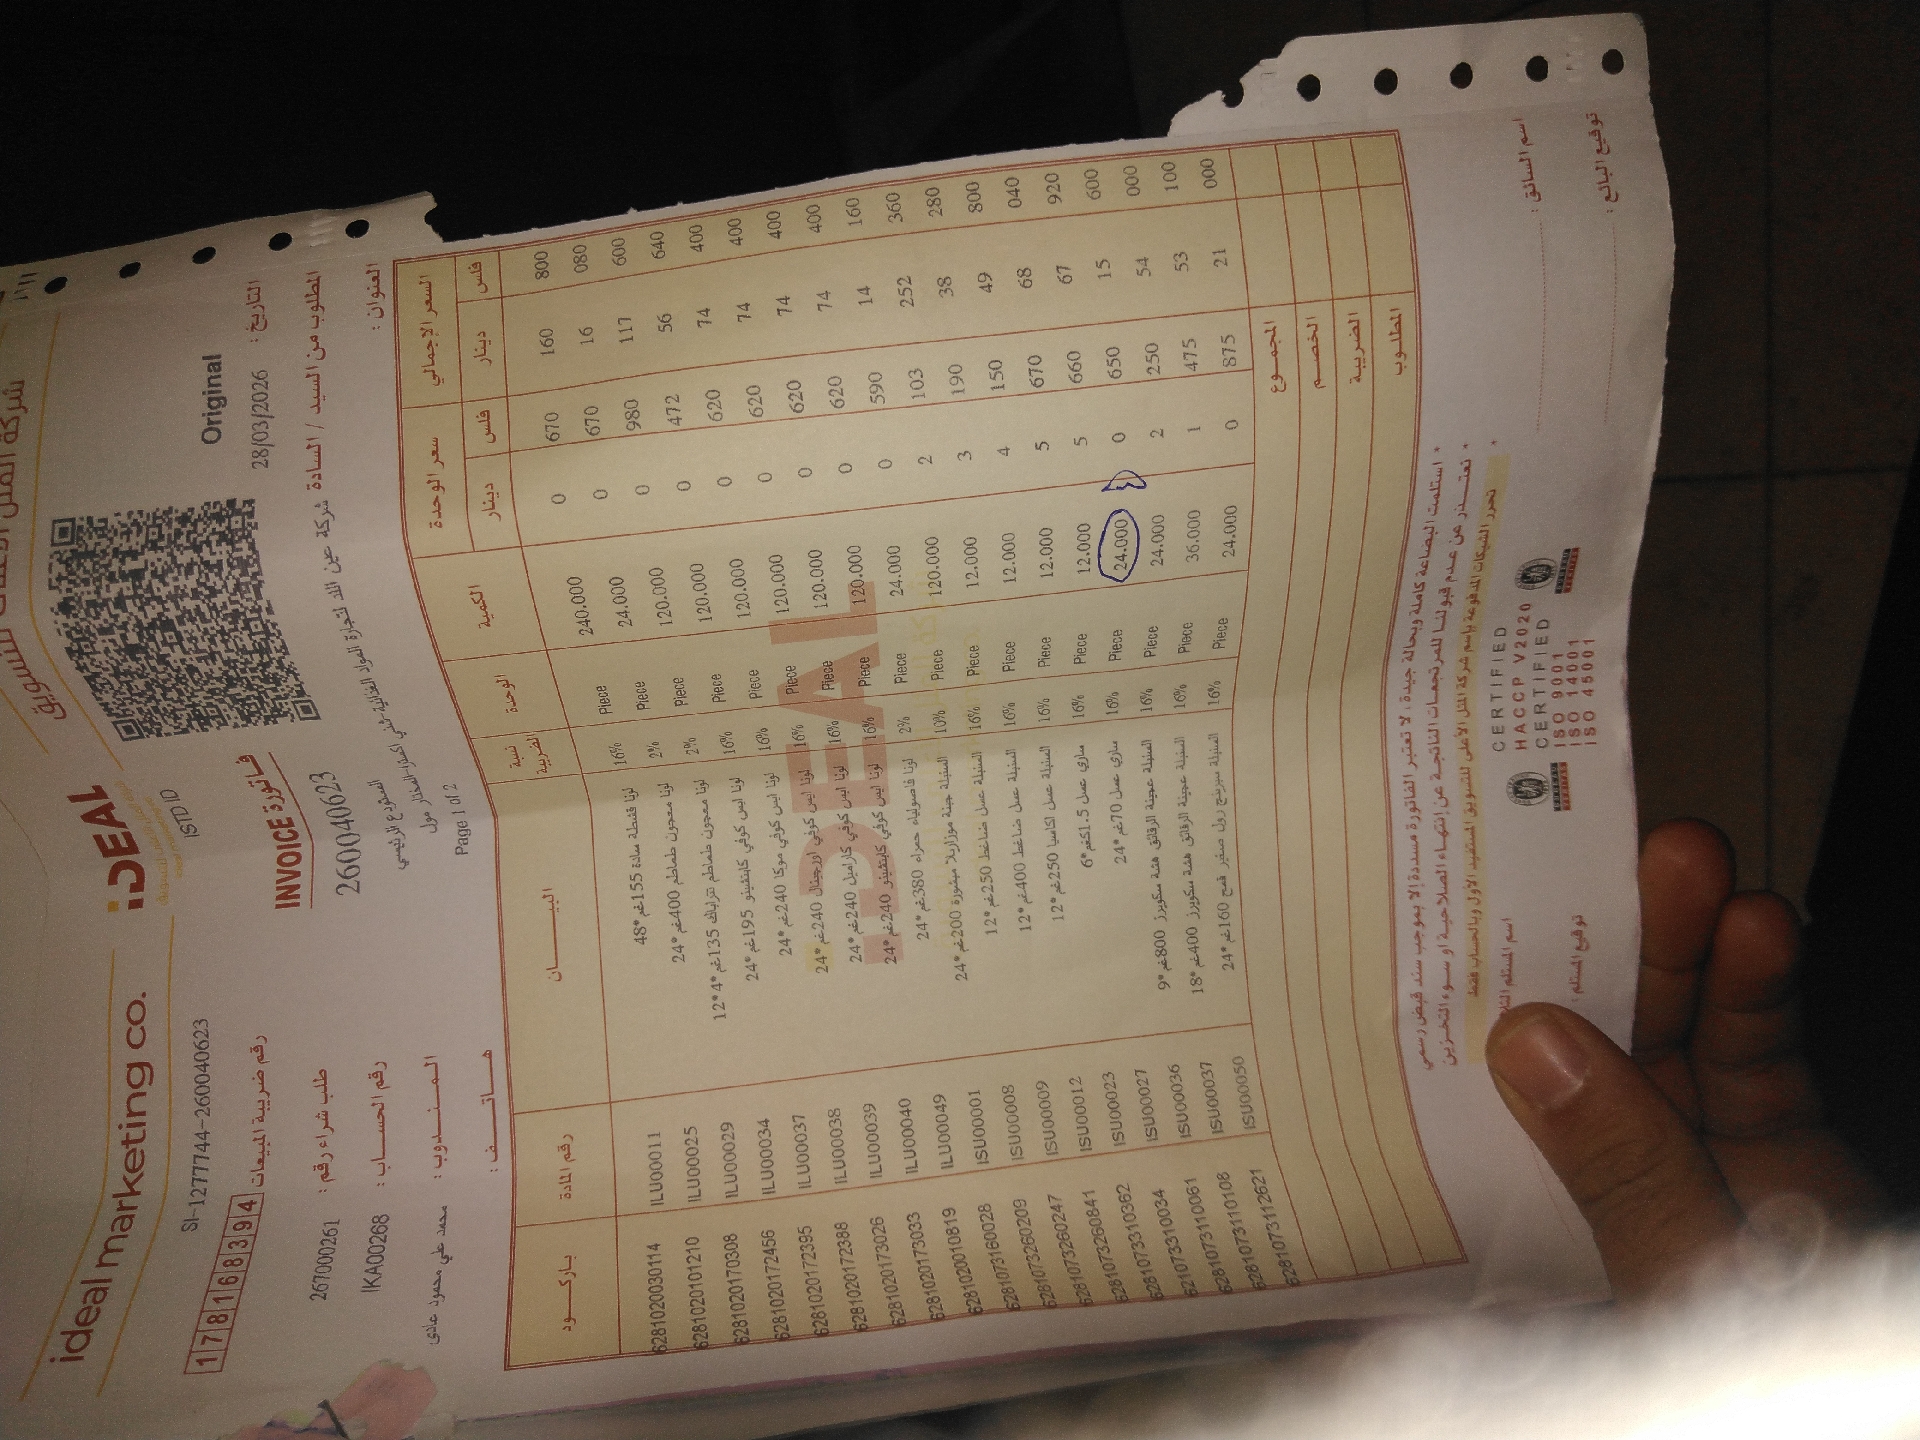 شركة المثل الأعلى للتسويق
ideal marketing co.
iDEAL
SI-1277744-260040623
ISTD ID
Original
178168394 رقم ضريبة المبيعات
فاتورة INVOICE
التاريخ : 28/03/2026
طلب شراء رقم : 267000261
260040623
المطلوب من السيد / السادة شركة عين الله لتجارة المواد الغذائية
رقم الحساب : IKA00268
المستودع الرئيسي
العنوان :
المندوب : محمد علي محمود عادي
Page 1 of 2
هاتف :
باركود رقم المادة البيان نسبة الضريبة الوحدة الكمية سعر الوحدة السعر الإجمالي
دينار فلس دينار فلس
6281020030114 ILU00011 لونا قشطة سادة 155غم*48 16% Piece 240.000 0 670 160 800
6281020101210 ILU00025 لونا معجون طماطم 400غم*24 2% Piece 24.000 0 670 16 080
6281020170308 ILU00029 لونا معجون طماطم تتراباك 135غم*4*12 2% Piece 120.000 0 980 117 600
6281020172456 ILU00034 لونا ايس كوفي كابتشينو 195غم*24 16% Piece 120.000 0 472 56 640
6281020172395 ILU00037 لونا ايس كوفي موكا 240غم*24 16% Piece 120.000 0 620 74 400
6281020172388 ILU00038 لونا ايس كوفي اورجينال 240غم*24 16% Piece 120.000 0 620 74 400
6281020173026 ILU00039 لونا ايس كوفي كاراميل 240غم*24 16% Piece 120.000 0 620 74 400
6281020173033 ILU00040 لونا ايس كوفي كابتشينو 240غم*24 16% Piece 120.000 0 620 74 400
6281020010819 ILU00049 لونا فاصولياء حمراء 380غم*24 2% Piece 24.000 0 590 14 160
6281073160028 ISU00001 السنبلة جبنة موزاريلا مبشورة 200غم*24 10% Piece 120.000 2 103 252 360
6281073260209 ISU00008 السنبلة عسل ضاغط 250غم*12 16% Piece 12.000 3 190 38 280
6281073260247 ISU00009 السنبلة عسل ضاغط 400غم*12 16% Piece 12.000 4 150 49 800
6281073260841 ISU00012 السنبلة عسل اكاسيا 250غم*12 16% Piece 12.000 5 670 68 040
6281073310362 ISU00023 ساري عسل 1.5كغم*6 16% Piece 12.000 5 660 67 920
6281073310034 ISU00027 ساري عسل 70غم*24 16% Piece 24.000 0 650 15 600
6210731110061 ISU00036 السنبلة عجينة الرقائق هشة سكويرز 800غم*9 16% Piece 24.000 2 250 54 000
6281073110108 ISU00037 السنبلة عجينة الرقائق هشة سكويرز 400غم*18 16% Piece 36.000 1 475 53 100
6281073112621 ISU00050 السنبلة سبرينج رول صغير قمح 160غم*24 16% Piece 24.000 0 875 21 000
iDEAL
المجموع
الخصم
الضريبة
المطلوب
* استلمت البضاعة كاملة وبحالة جيدة، لا تعتبر الفاتورة مسددة إلا بموجب سند قبض رسمي
* نعتذر عن عدم قبولنا للمرتجعات الناتجة عن إنتهاء الصلاحية او سوء التخزين
* تحرر الشيكات المدفوعة بإسم شركة المثل الأعلى للتسويق المستفيد الأول وبالحساب فقط
CERTIFIED
HACCP V2020
CERTIFIED
ISO 9001
ISO 14001
ISO 45001
اسم المستلم
اسم السائق :
توقيع المستلم :
توقيع البائع :